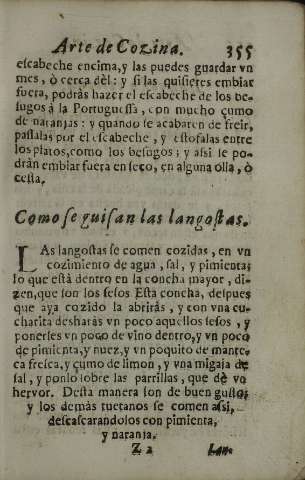 Arte de Cozina. 355
escabeche encima, y las puedes guardar vn
mes, ò cerca dèl: y si las quisieres embiar
fuera, podràs hazer el escabeche de los be-
sugos à la Portuguessa, con mucho çumo
de naranjas: y quando se acabaren de freir,
passalas por el escabeche, y estofalas entre
los platos, como los besugos; y assi se po-
dràn embiar fuera en seco, en alguna olla, ò
cesta.
Como se guisan las langostas.
LAs langostas se comen cozidas, en vn
cozimiento de agua, sal, y pimienta;
lo que està dentro en la concha mayor, di-
zen, que son los sesos Esta concha, despues
que aya cozido la abriràs, y con vna cu-
charita desharàs vn poco aquellos sesos, y
ponerles vn poco de vino dentro, y vn poco
de pimienta, y nuez, y vn poquito de mante-
ca fresca, y çumo de limon, y vna migaja de
sal, y ponlo sobre las parrillas, que dè vn
hervor. Desta manera son de buen gusto;
y los demàs tuetanos se comen assi,
descascarandolos con pimienta,
y naranja.
Z 2 Lan-